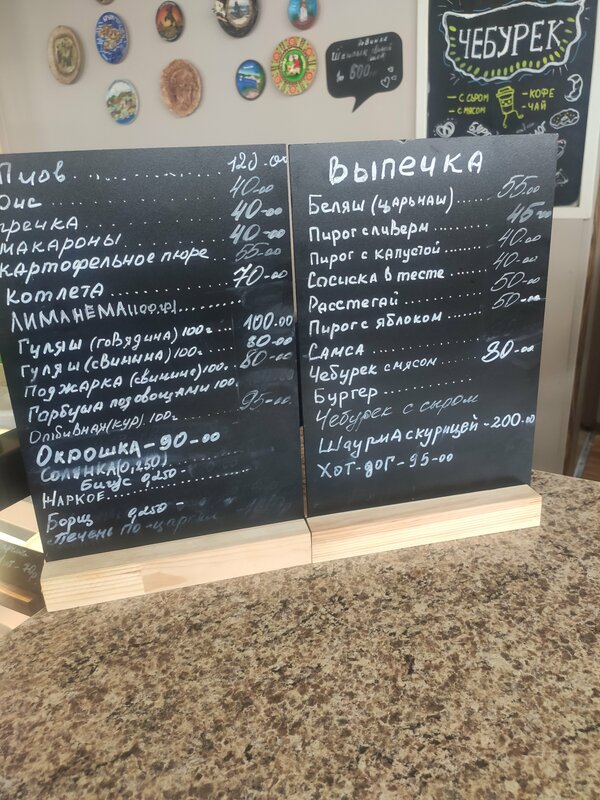 Плов ............ 120.00
Рис ............ 40-00
гречка ............ 40-00
макароны ............ 40-00
картофельное пюре 55-00
Котлета ............ 70-00
ЛИМАНЕМА(100гр)..........
Гуляш (говядина) 100г. 100.00
Гуляш (свинина) 100г. 80-00
Поджарка (свинина) 100г. 80-00
Горбуша под овощами 100.
Отбивная(кур). 100г 95-00
Окрошка-90-00
Солянка(0,250)
Бигус 0,250
Жаркое...............
Борщ 0,250 -
Печень по-царски
Выпечка
Беляш (царьнаш) 55.00
Пирог с ливерм ....... 45-00
Пирог с капустой ....... 40-00
Сосиска в тесте ....... 40-00
Расстегай ............ 50-00
Пирог с яблоком ....... 50-00
Самса ............
Чебурек с мясом ....... 80-00
Бургер ............
Чебурек с сыром
Шаурма с курицей-200.00
Хот-дог-95-00
Новинка
Шашлык
600
ЧЕБУРЕК
— С СЫРОМ
— С МЯСОМ
— КОФЕ
— ЧАЙ